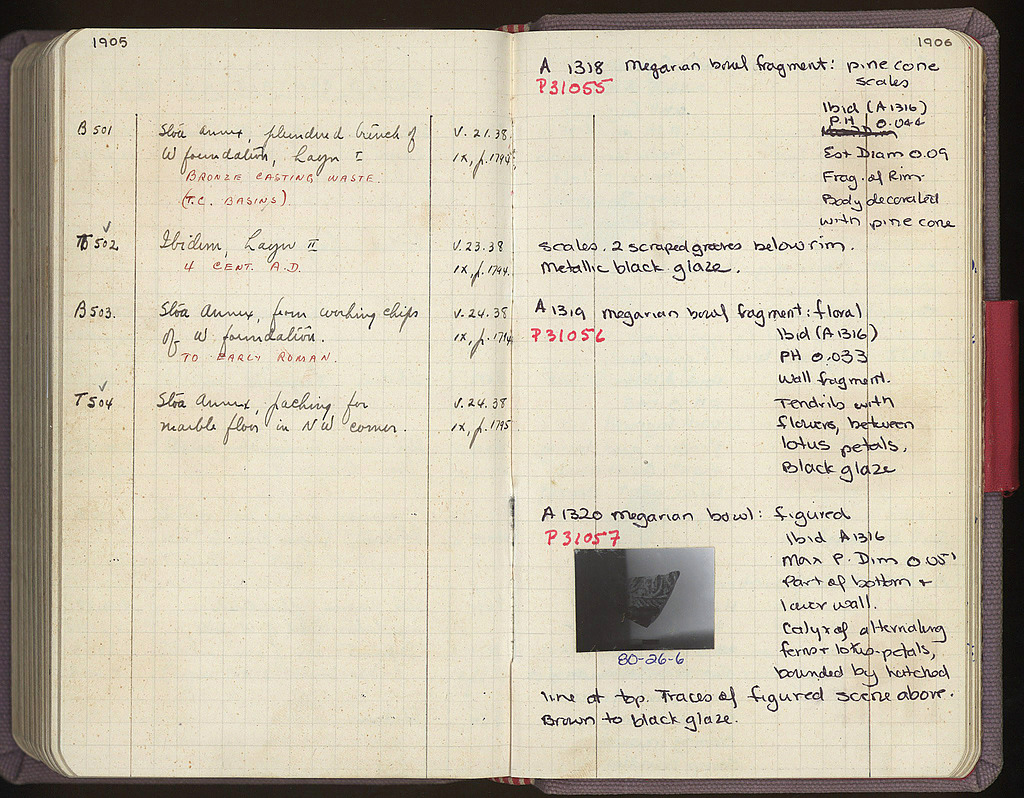 1905
B 501 Stoa Annex, plundered trench of V. 21. 38.
W foundation, Layer I IX, p. 1794.
BRONZE CASTING WASTE.
(T.C. BASINS)
T 502 Ibidem, Layer II V. 23. 38
4 CENT. A.D. IX, p. 1794.
B 503. Stoa Annex, from working chips V. 24. 38
of W foundation. IX, p. 1794
TO EARLY ROMAN.
T 504 Stoa Annex, packing for V. 24. 38
marble floor in NW corner. IX, p. 1795
1906
A 1318 Megarian bowl fragment: pine cone
scales
P31055
Ibid (A1316)
P.H 0.044
Est Diam 0.09
Frag. of Rim
Body decorated
with pine cone
scales. 2 scraped grooves below rim.
Metallic black glaze.
A 1319 Megarian bowl fragment: floral
P31056 Ibid (A1316)
PH 0.033
Wall fragment.
Tendrils with
flowers, between
lotus petals.
Black glaze
A 1320 Megarian bowl: figured
P31057 Ibid A1316
Max P. Dim 0.051
Part of bottom +
lower wall.
Calyx of alternating
ferns + lotus-petals,
bounded by hatched
80-26-6
line at top. Traces of figured scene above.
Brown to black glaze.